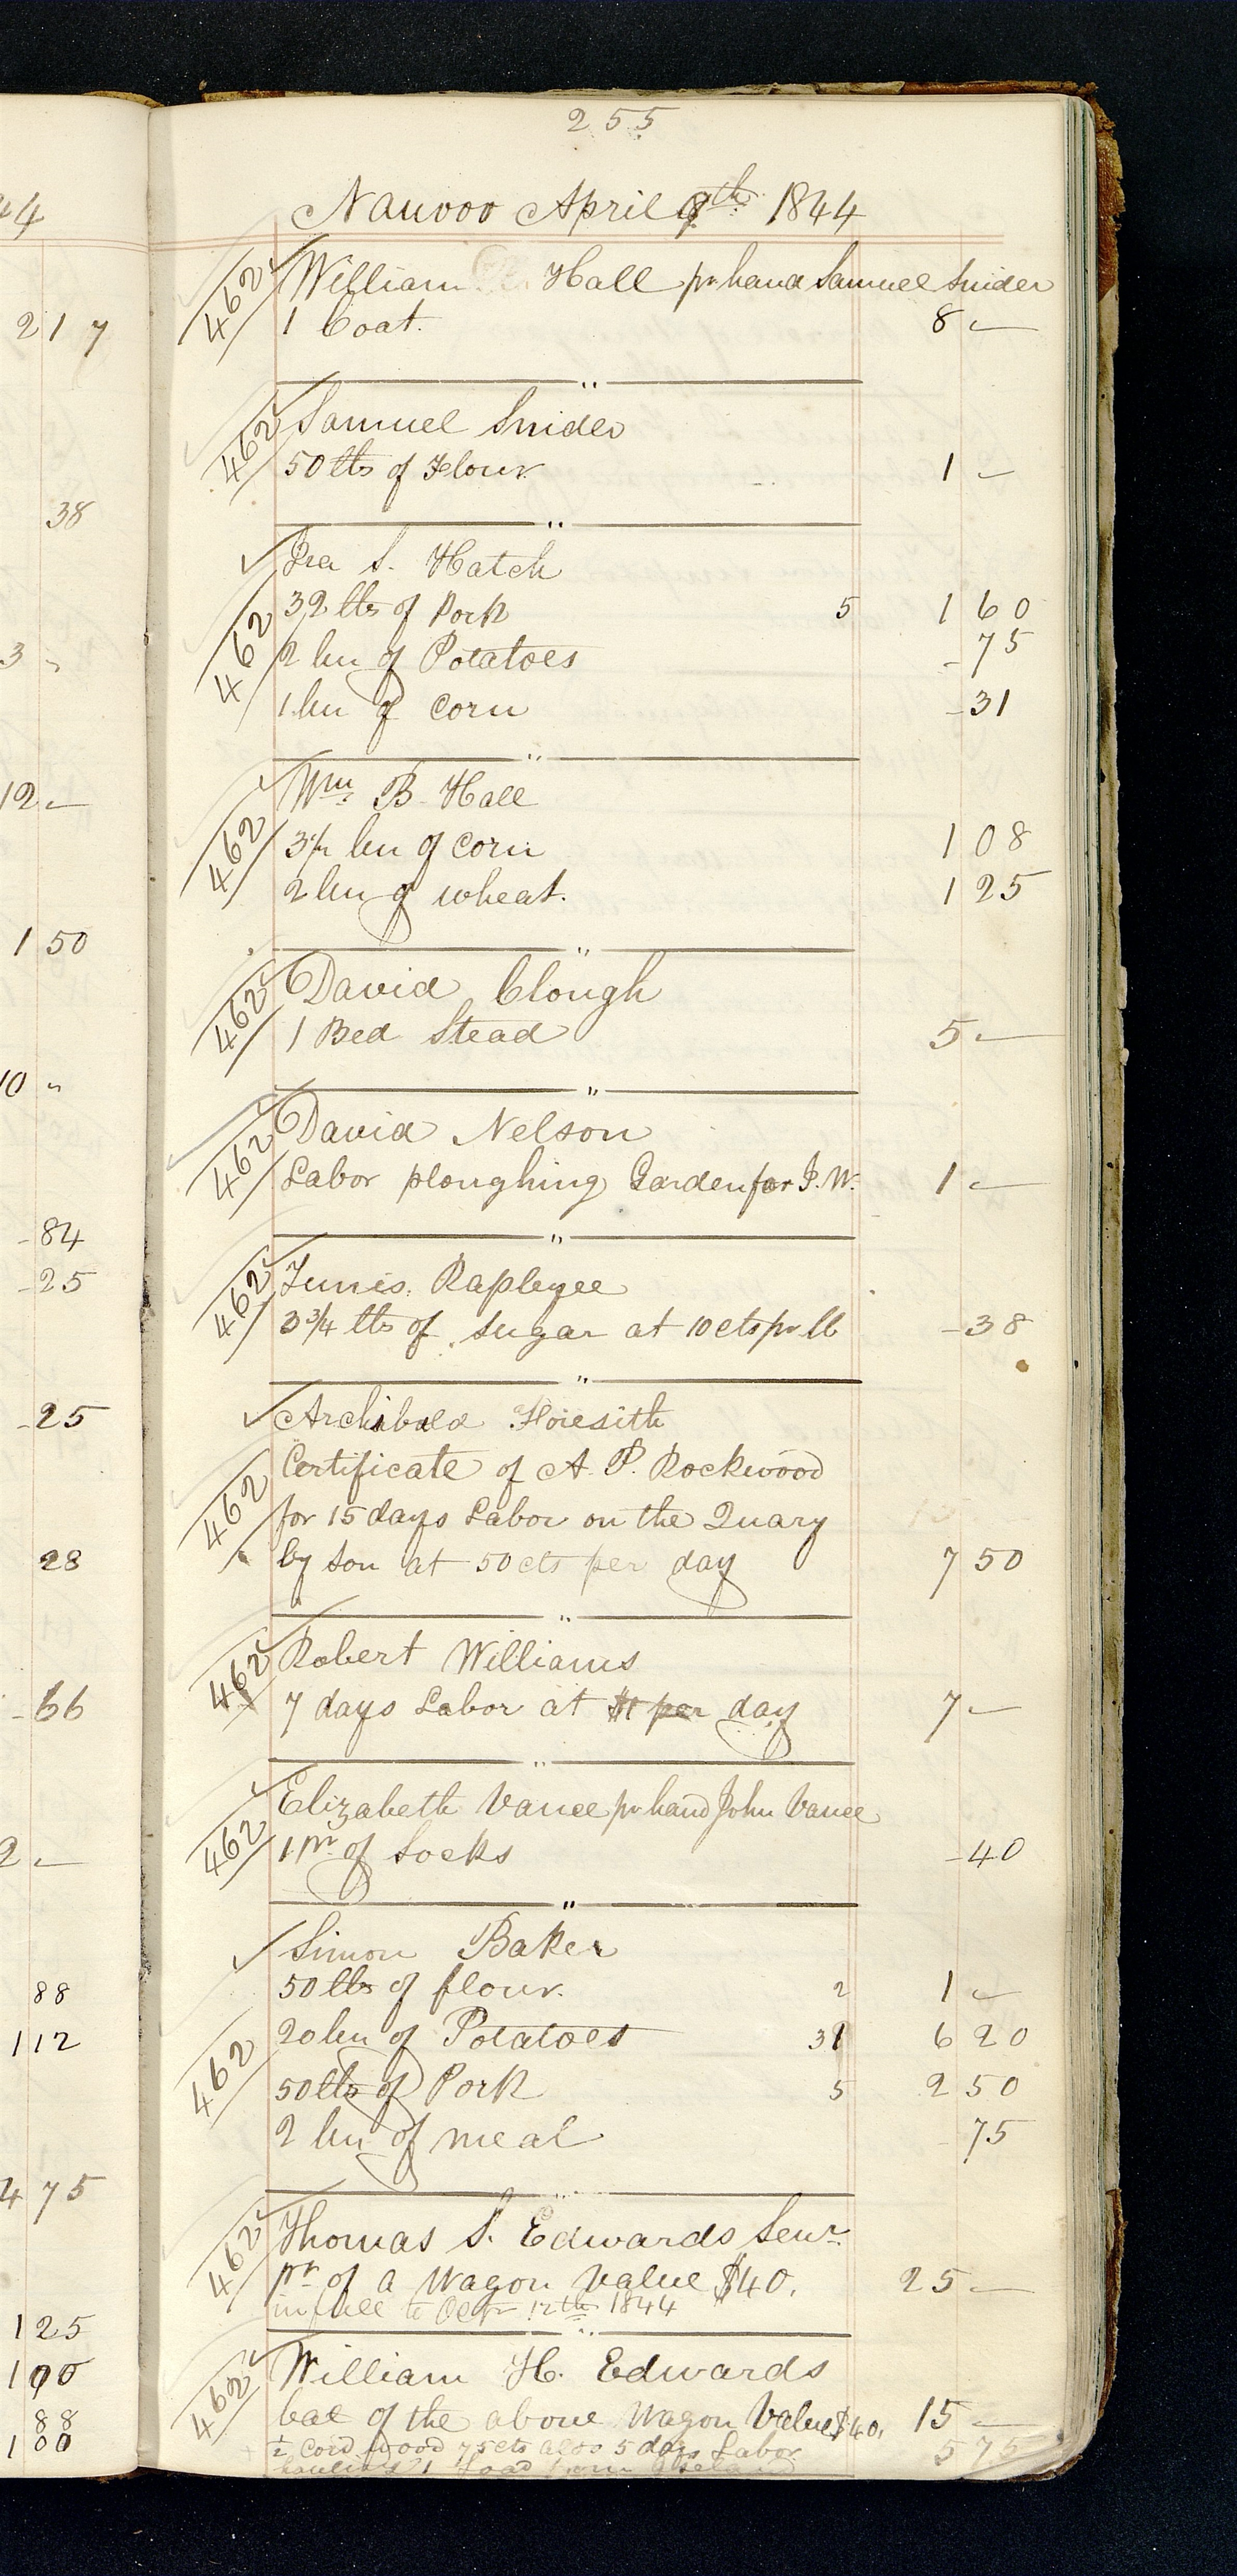 255
Nauvoo April 9th 1844
44
462 William Hall pr hand Samuel Snider
1 Coat. 8 -
217
462 Samuel Snider
50 lbs of Flour 1 -
38
Ira S. Hatch
32 lbs of Pork 5 1 60
462 2 bu of Potatoes - 75
3 "
1 bu of corn - 31
Wm B Hall
12 -
462 3½ bu of corn 1 08
2 bu of wheat. 1 25
1 50
462 David Clough
1 Bed Stead 5 -
10 "
462 David Nelson
Labor ploughing Garden for J. W. 1 -
- 84
- 25
462 Tunis Rapleyee
3¾ lbs of Sugar at 10 cts pr lb - 38
- 25
Archibald
Certificate of A. P. Rockwood
462 for 15 days Labor on the Quary
by Son at 50 cts per day 7 50
28
462 Robert Williams
7 days Labor at $1 per day 7 -
- 66
Elizabeth Vance pr hand John Vance
462 1 pr of Socks - 40
2 -
Simon Baker
50 lbs of flour. 2 1 -
88
20 bu of Potatoes 31 6 20
1 12
462 50 lbs of Pork 5 2 50
2 bu of meal 75
4 75
462 Thomas S. Edwards Senr
pr of a Wagon Value $40. 25 -
in full to Octr 12th 1844
1 25
462 William H. Edwards
1 00
bal of the above Wagon Value $40. 15 -
88
½ Cord wood 75 cts also 5 days Labor 5 75
1 00
hauling 1 Load from